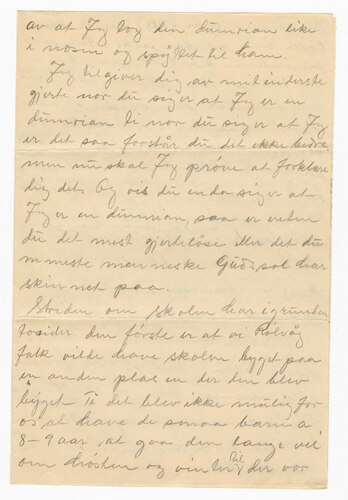 av at Jeg tog den dumrian like
i nosne og spyttet til ham.
Jeg tilgiver dig av mit inderste
hjerte nor du siger at Jeg er en
dumrian Ti nor du siger at Jeg
er det saa forstår du det ikke bedre
men nu skal Jeg prøve at forklare
dig det. Og vis du enda siger at
Jeg er en dumrian, saa er enten
du det mest hjerteløse eller det du
mmeste menneske Guds sol har
skinnet paa.
Striden om skolen har i grunden
tosider den første er at vi Rølvåg
folk vilke have skolen bygget paa
en anden plas en der den blev
bygget. Ti det blev ikke mulig for
os at have de smaa barn a
8-9 aar, at gaa den lange vei
om høsten og vinter til der vor